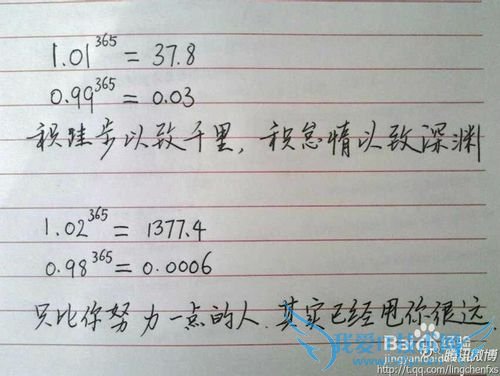 1.01^365 = 37.8
0.99^365 = 0.03
积跬步以致千里，积怠惰以致深渊
1.02^365 = 1377.4
0.98^365 = 0.0006
只比你努力一点的人.其实已经甩你很远
Baidu经验
jingyanbaidu.com
腾讯微博
http://t.qq.com/lingchenfxs